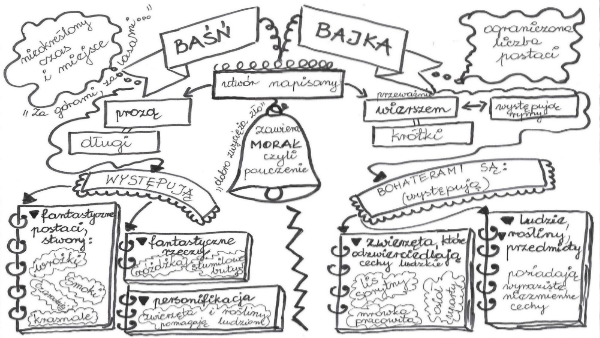 nieokreślony
czas
i miejsce
"Za górami, za lasami..."
BAŚŃ
BAJKA
ograniczona
liczba
postaci
utwór napisany
prozą
długi
przeważnie
wierszem
występują
rymy
krótki
"dobro zwycięża zło"
zawiera
MORAŁ
czyli
pouczenie
WYSTĘPUJĄ
BOHATERAMI SĄ:
(występują)
fantastyczne
postaci,
stwory:
wróżki
smoki
krasnale
fantastyczne
rzeczy:
różdżka
buty
personifikacja
zwierzęta i rośliny
pomagają ludziom
zwierzęta, które
odzwierciedlają
cechy ludzkie:
lis
sprytny
mrówka
pracowita
osioł
uparty
ludzie,
rośliny,
przedmioty
posiadają
wyraziste
niezmienne
cechy